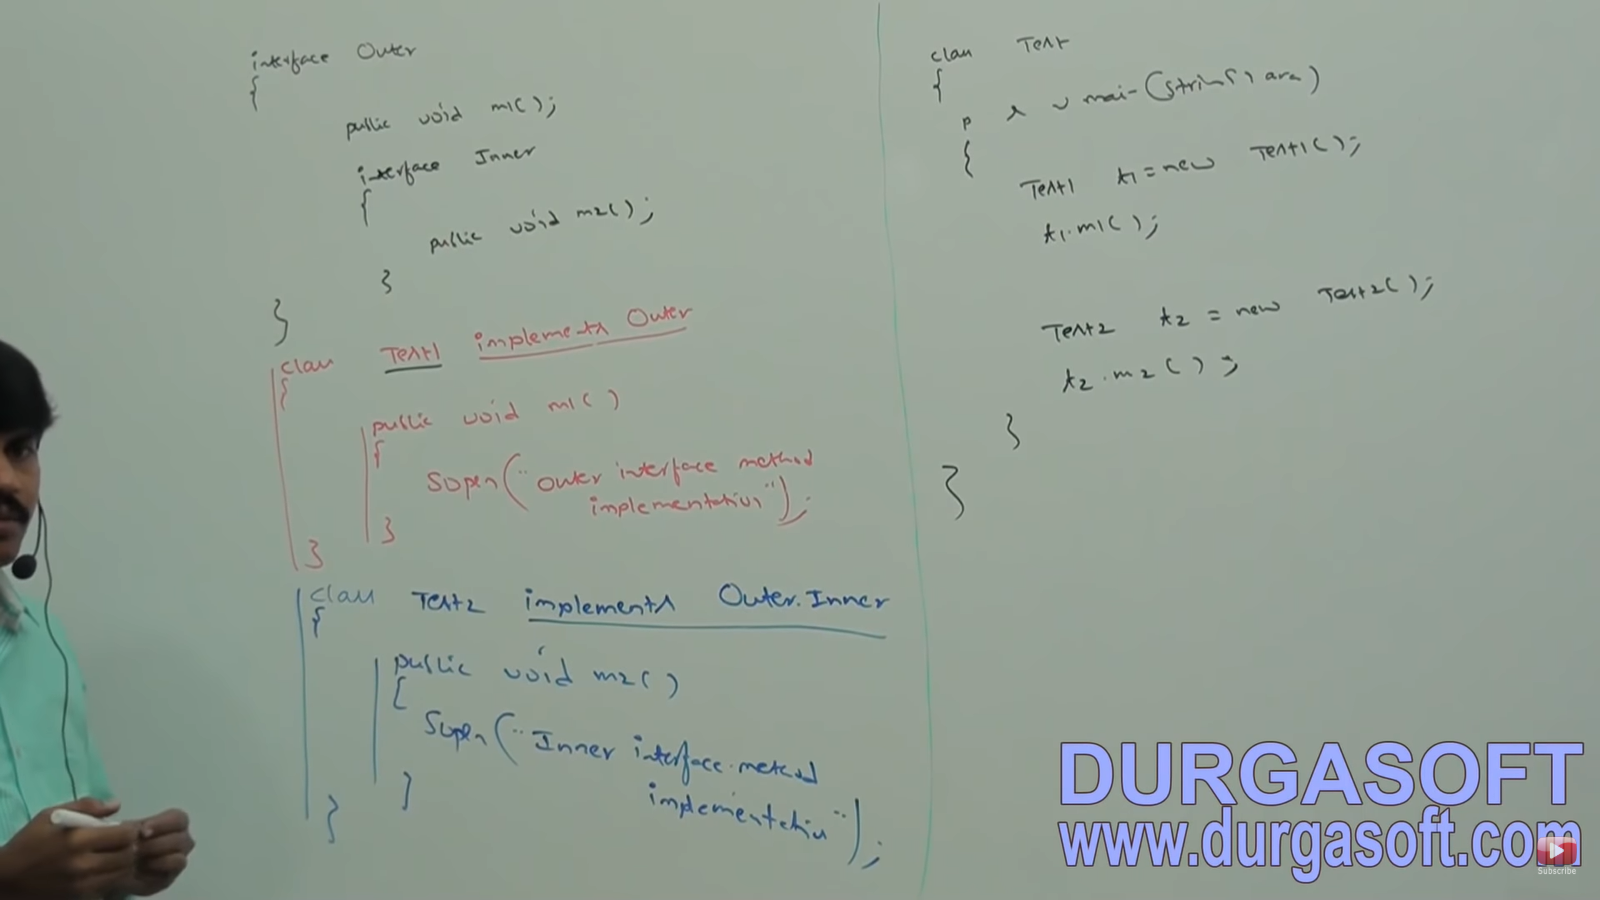 interface Outer
{
public void m1();
interface Inner
{
public void m2();
}
}
class Test1 implements Outer
{
public void m1()
{
Sopln("outer interface method
implementation");
}
}
class Test2 implements Outer.Inner
{
public void m2()
{
Sopln("Inner interface method
implementation");
}
}
class Test
{
p s v main(String[] args)
{
Test1 t1 = new Test1();
t1.m1();
Test2 t2 = new Test2();
t2.m2();
}
}
DURGASOFT
www.durgasoft.com
Subscribe